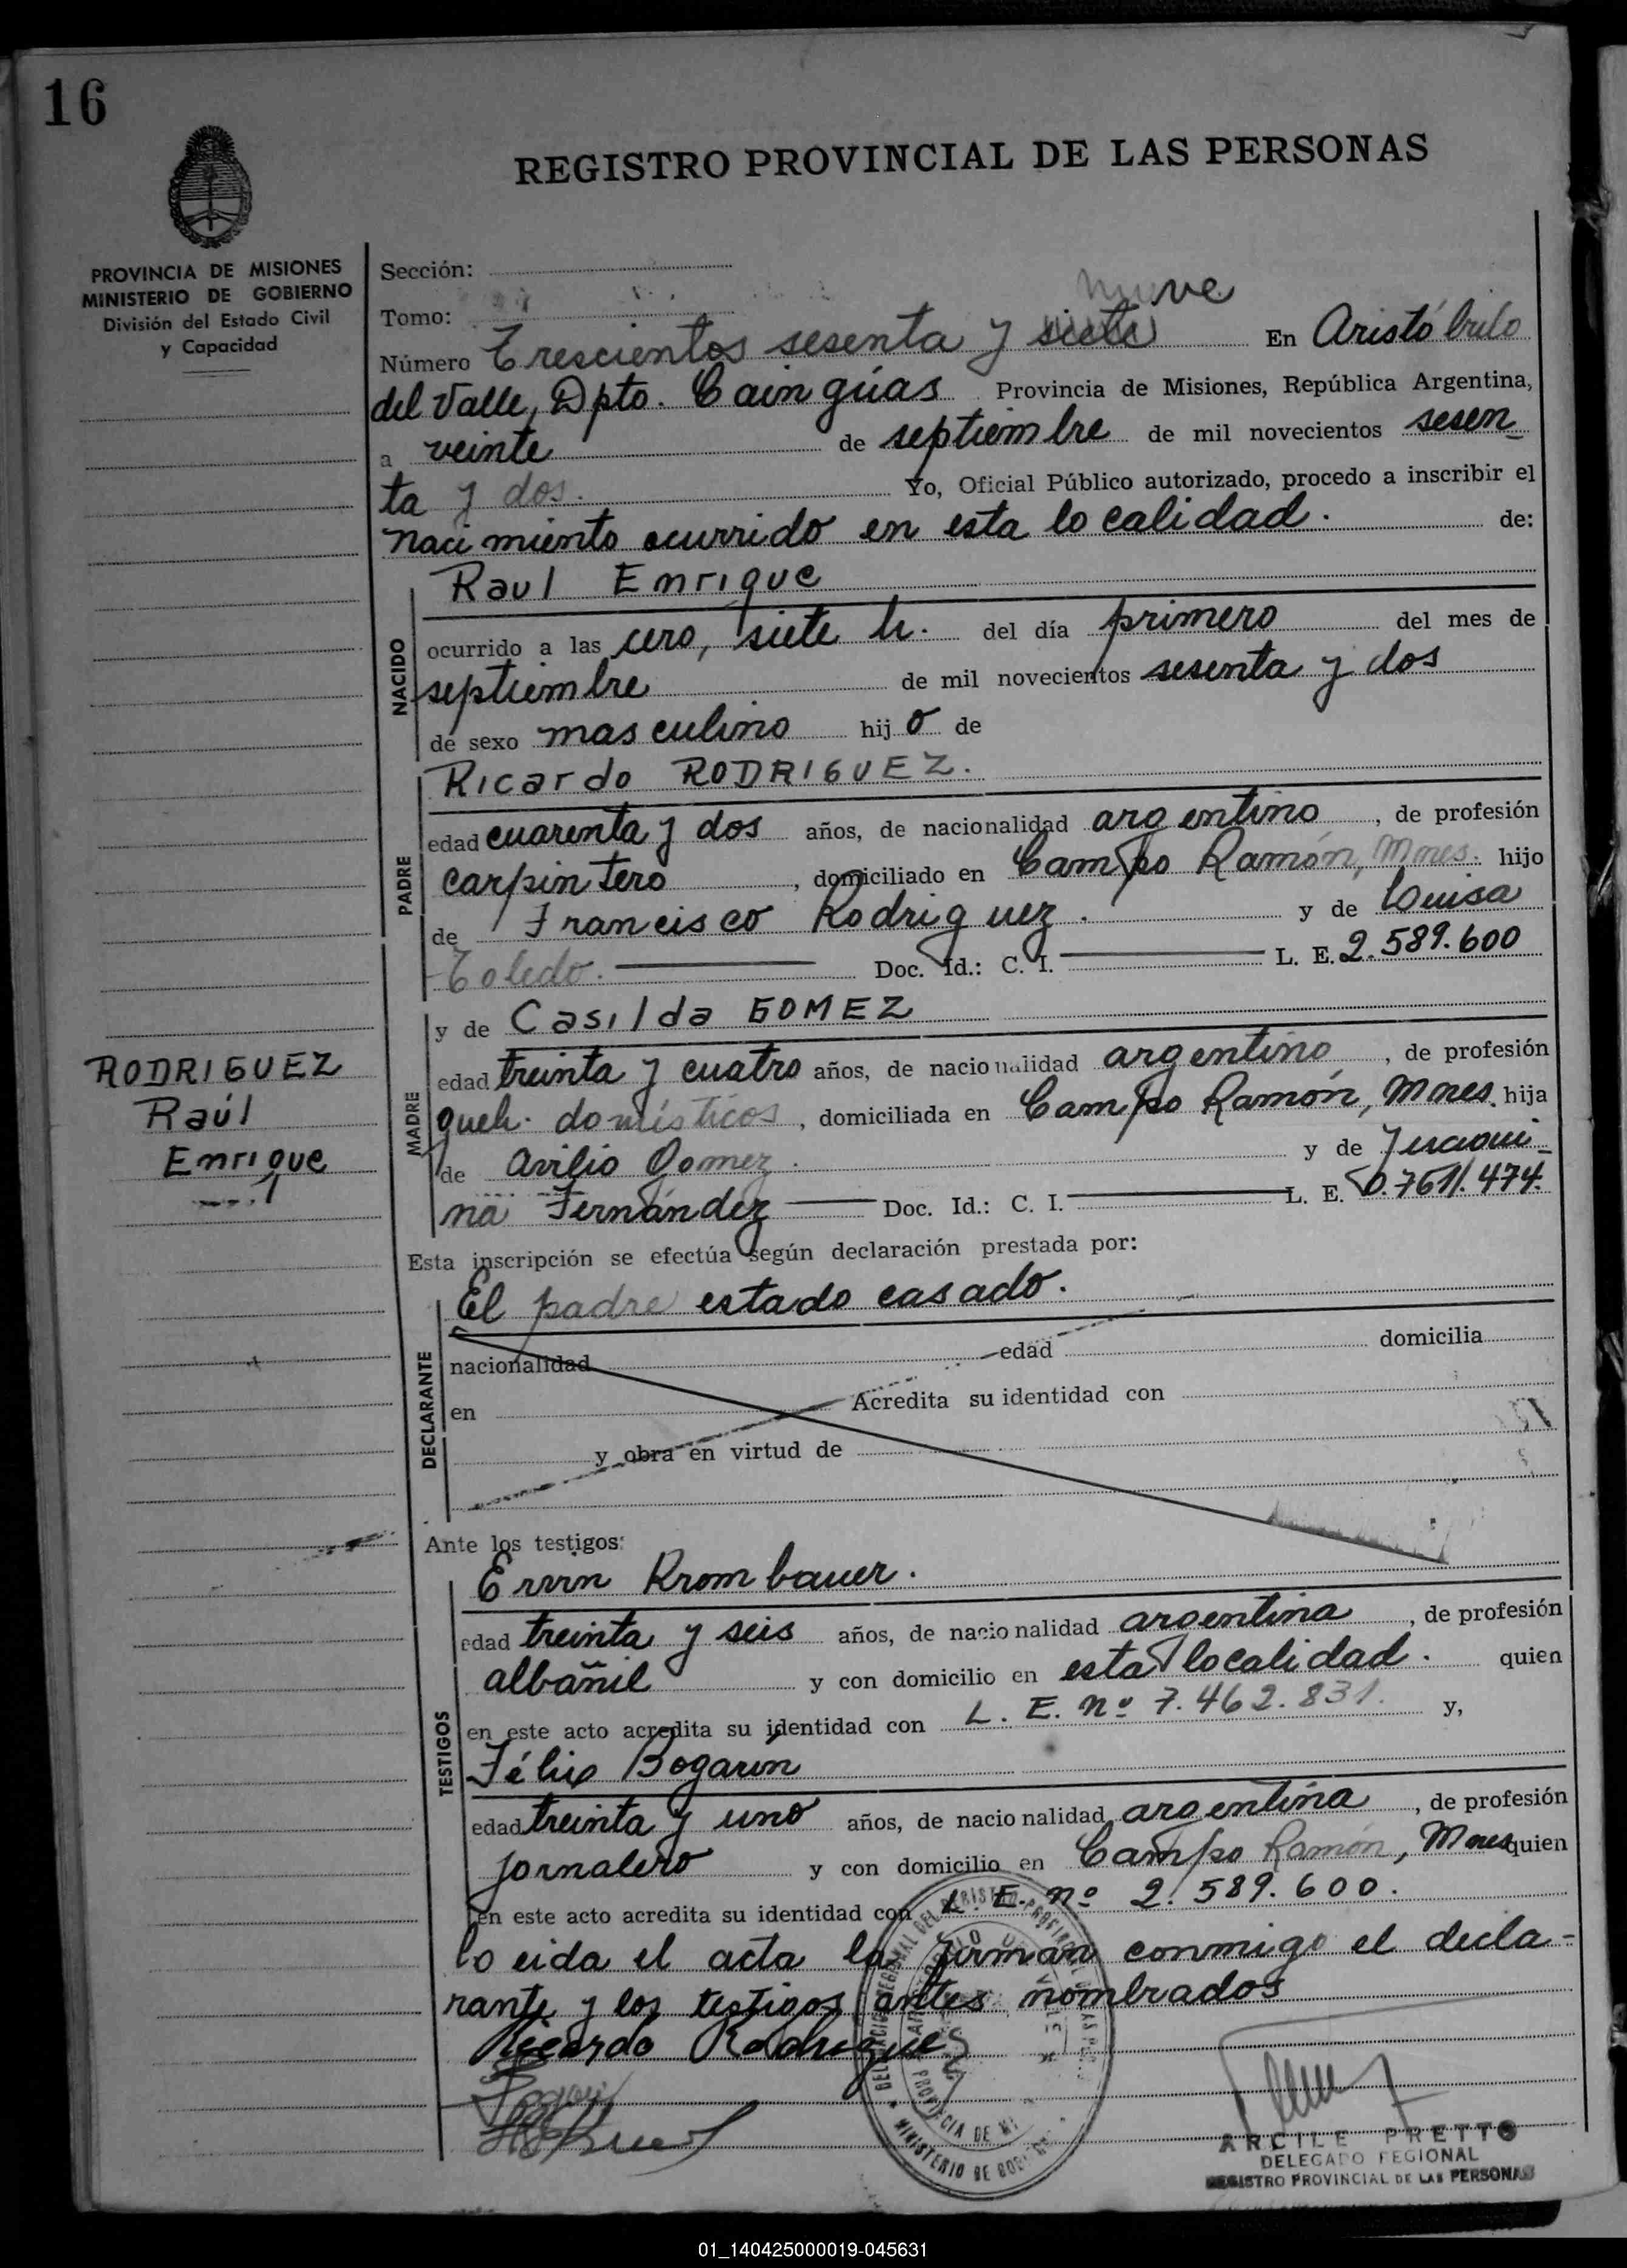 16
REGISTRO PROVINCIAL DE LAS PERSONAS
PROVINCIA DE MISIONES
MINISTERIO DE GOBIERNO
División del Estado Civil
y Capacidad
Sección:
Tomo:
nueve
Número Trescientos sesenta y siete En Aristóbulo
del Valle, Dpto. Cainguas Provincia de Misiones, República Argentina,
a veinte de septiembre de mil novecientos sesen-
ta y dos. Yo, Oficial Público autorizado, procedo a inscribir el
nacimiento ocurrido en esta localidad. de:
Raul Enrique
NACIDO
ocurrido a las cero, siete h. del día primero del mes de
septiembre de mil novecientos sesenta y dos
de sexo masculino hijo de
Ricardo RODRIGUEZ.
PADRE
edad cuarenta y dos años, de nacionalidad argentino, de profesión
carpintero, domiciliado en Campo Ramón, Mnes. hijo
de Francisco Rodriguez. y de Luisa
Toledo. Doc. Id.: C. I. L. E. 2.589.600
MADRE
y de Casilda GOMEZ
edad treinta y cuatro años, de nacionalidad argentino, de profesión
queh. domésticos, domiciliada en Campo Ramón, Mnes. hija
de Avilio Gomez. y de
na Fernández Doc. Id.: C. I. L. E.
RODRIGUEZ
Raúl
Enrique
Esta inscripción se efectúa según declaración prestada por:
El padre estado casado.
DECLARANTE
nacionalidad edad domicilia
en Acredita su identidad con
y obra en virtud de
Ante los testigos:
Ervin Krombauer.
TESTIGOS
edad treinta y seis años, de nacionalidad argentina, de profesión
albañil y con domicilio en esta localidad. quien
en este acto acredita su identidad con L. E. nº 7.462.831. y,
Félix Bogarin
edad treinta y uno años, de nacionalidad argentina, de profesión
jornalero y con domicilio en Campo Ramón, Mnes quien
en este acto acredita su identidad con L. E. nº 2.589.600.
Leida el acta la firman conmigo el decla-
rante y los testigos antes nombrados
Ricardo Rodriguez
ARCILE PRETTO
DELEGADO REGIONAL
REGISTRO PROVINCIAL DE LAS PERSONAS
01_140425000019-045631